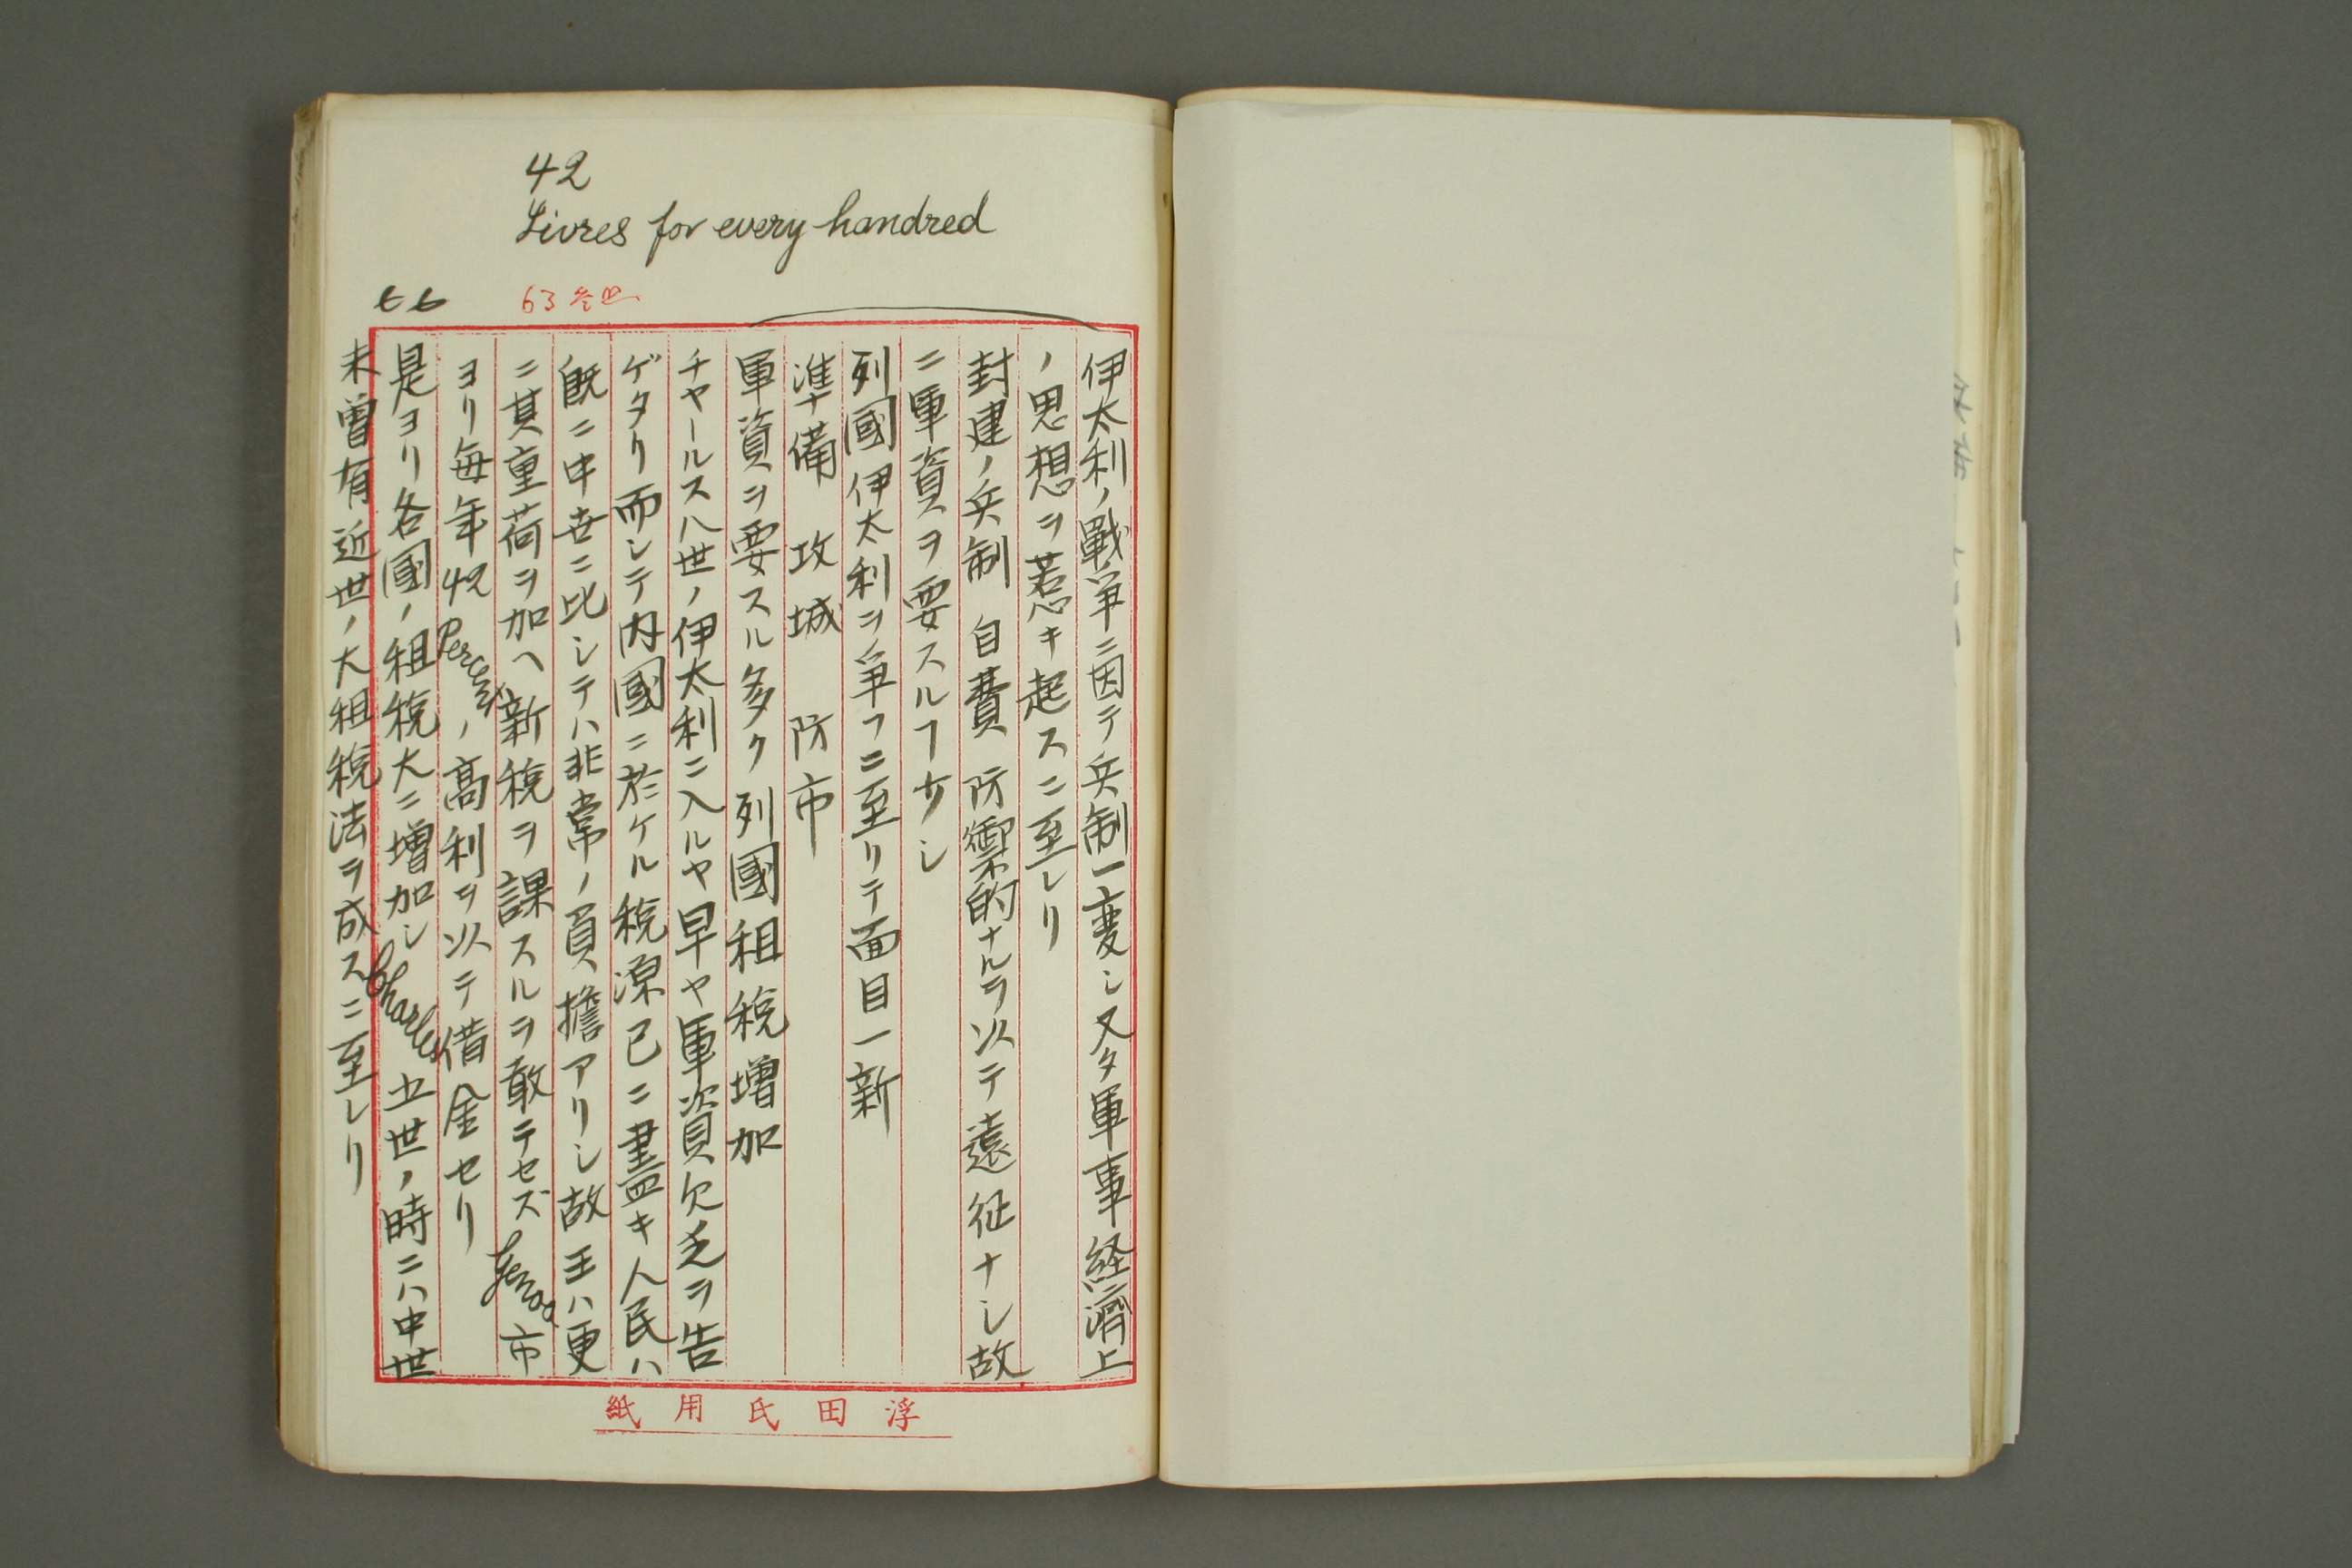 42
Livres for every handred
66
63
伊太利ノ戰爭ニ因テ兵制一変シ又タ軍事経濟上
ノ思想ヲ惹キ起スニ至レリ
封建ノ兵制 自費 防禦的ナルヲ以テ遠征ナシ故
ニ軍資ヲ要スルヿ少シ
列國伊太利ヲ爭フニ至リテ面目一新
準備 攻城 防市
軍資ヲ要スル多ク列國租税増加
チャールス八世ノ伊太利ニ入ルヤ早ヤ軍資欠乏ヲ告
ゲタリ而シテ内國ニ於ケル税源已ニ盡キ人民ハ
既ニ中世ニ比シテハ非常ノ負擔アリシ故王ハ更
ニ其重荷ヲ加ヘ新税ヲ課スルヲ敢テセズGenoa市
ヨリ毎年42 Percentノ高利ヲ以テ借金セリ
是ヨリ各國ノ租税大ニ増加シCharles五世ノ時ニハ中世
未曽有近世ノ大租税法ヲ成スニ至レリ
浮田氏用紙